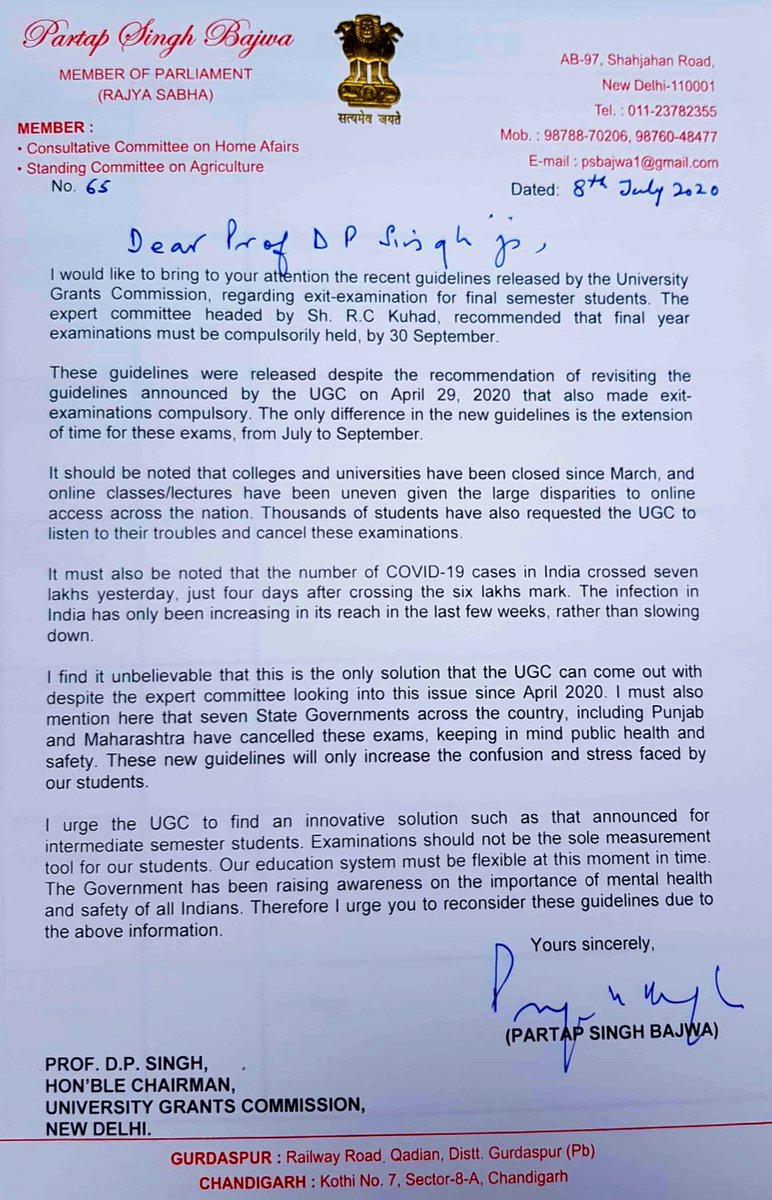 Partap Singh Bajwa
MEMBER OF PARLIAMENT
(RAJYA SABHA)
MEMBER :
• Consultative Committee on Home Afairs
• Standing Committee on Agriculture
No. 65
सत्यमेव जयते
AB-97, Shahjahan Road,
New Delhi-110001
Tel. : 011-23782355
Mob. : 98788-70206, 98760-48477
E-mail : psbajwa1@gmail.com
Dated: 8th July 2020
Dear Prof D P Singh ji,
I would like to bring to your attention the recent guidelines released by the University
Grants Commission, regarding exit-examination for final semester students. The
expert committee headed by Sh. R.C Kuhad, recommended that final year
examinations must be compulsorily held, by 30 September.
These guidelines were released despite the recommendation of revisiting the
guidelines announced by the UGC on April 29, 2020 that also made exit-
examinations compulsory. The only difference in the new guidelines is the extension
of time for these exams, from July to September.
It should be noted that colleges and universities have been closed since March, and
online classes/lectures have been uneven given the large disparities to online
access across the nation. Thousands of students have also requested the UGC to
listen to their troubles and cancel these examinations.
It must also be noted that the number of COVID-19 cases in India crossed seven
lakhs yesterday, just four days after crossing the six lakhs mark. The infection in
India has only been increasing in its reach in the last few weeks, rather than slowing
down.
I find it unbelievable that this is the only solution that the UGC can come out with
despite the expert committee looking into this issue since April 2020. I must also
mention here that seven State Governments across the country, including Punjab
and Maharashtra have cancelled these exams, keeping in mind public health and
safety. These new guidelines will only increase the confusion and stress faced by
our students.
I urge the UGC to find an innovative solution such as that announced for
intermediate semester students. Examinations should not be the sole measurement
tool for our students. Our education system must be flexible at this moment in time.
The Government has been raising awareness on the importance of mental health
and safety of all Indians. Therefore I urge you to reconsider these guidelines due to
the above information.
Yours sincerely,
(PARTAP SINGH BAJWA)
PROF. D.P. SINGH,
HON'BLE CHAIRMAN,
UNIVERSITY GRANTS COMMISSION,
NEW DELHI.
GURDASPUR : Railway Road, Qadian, Distt. Gurdaspur (Pb)
CHANDIGARH : Kothi No. 7, Sector-8-A, Chandigarh